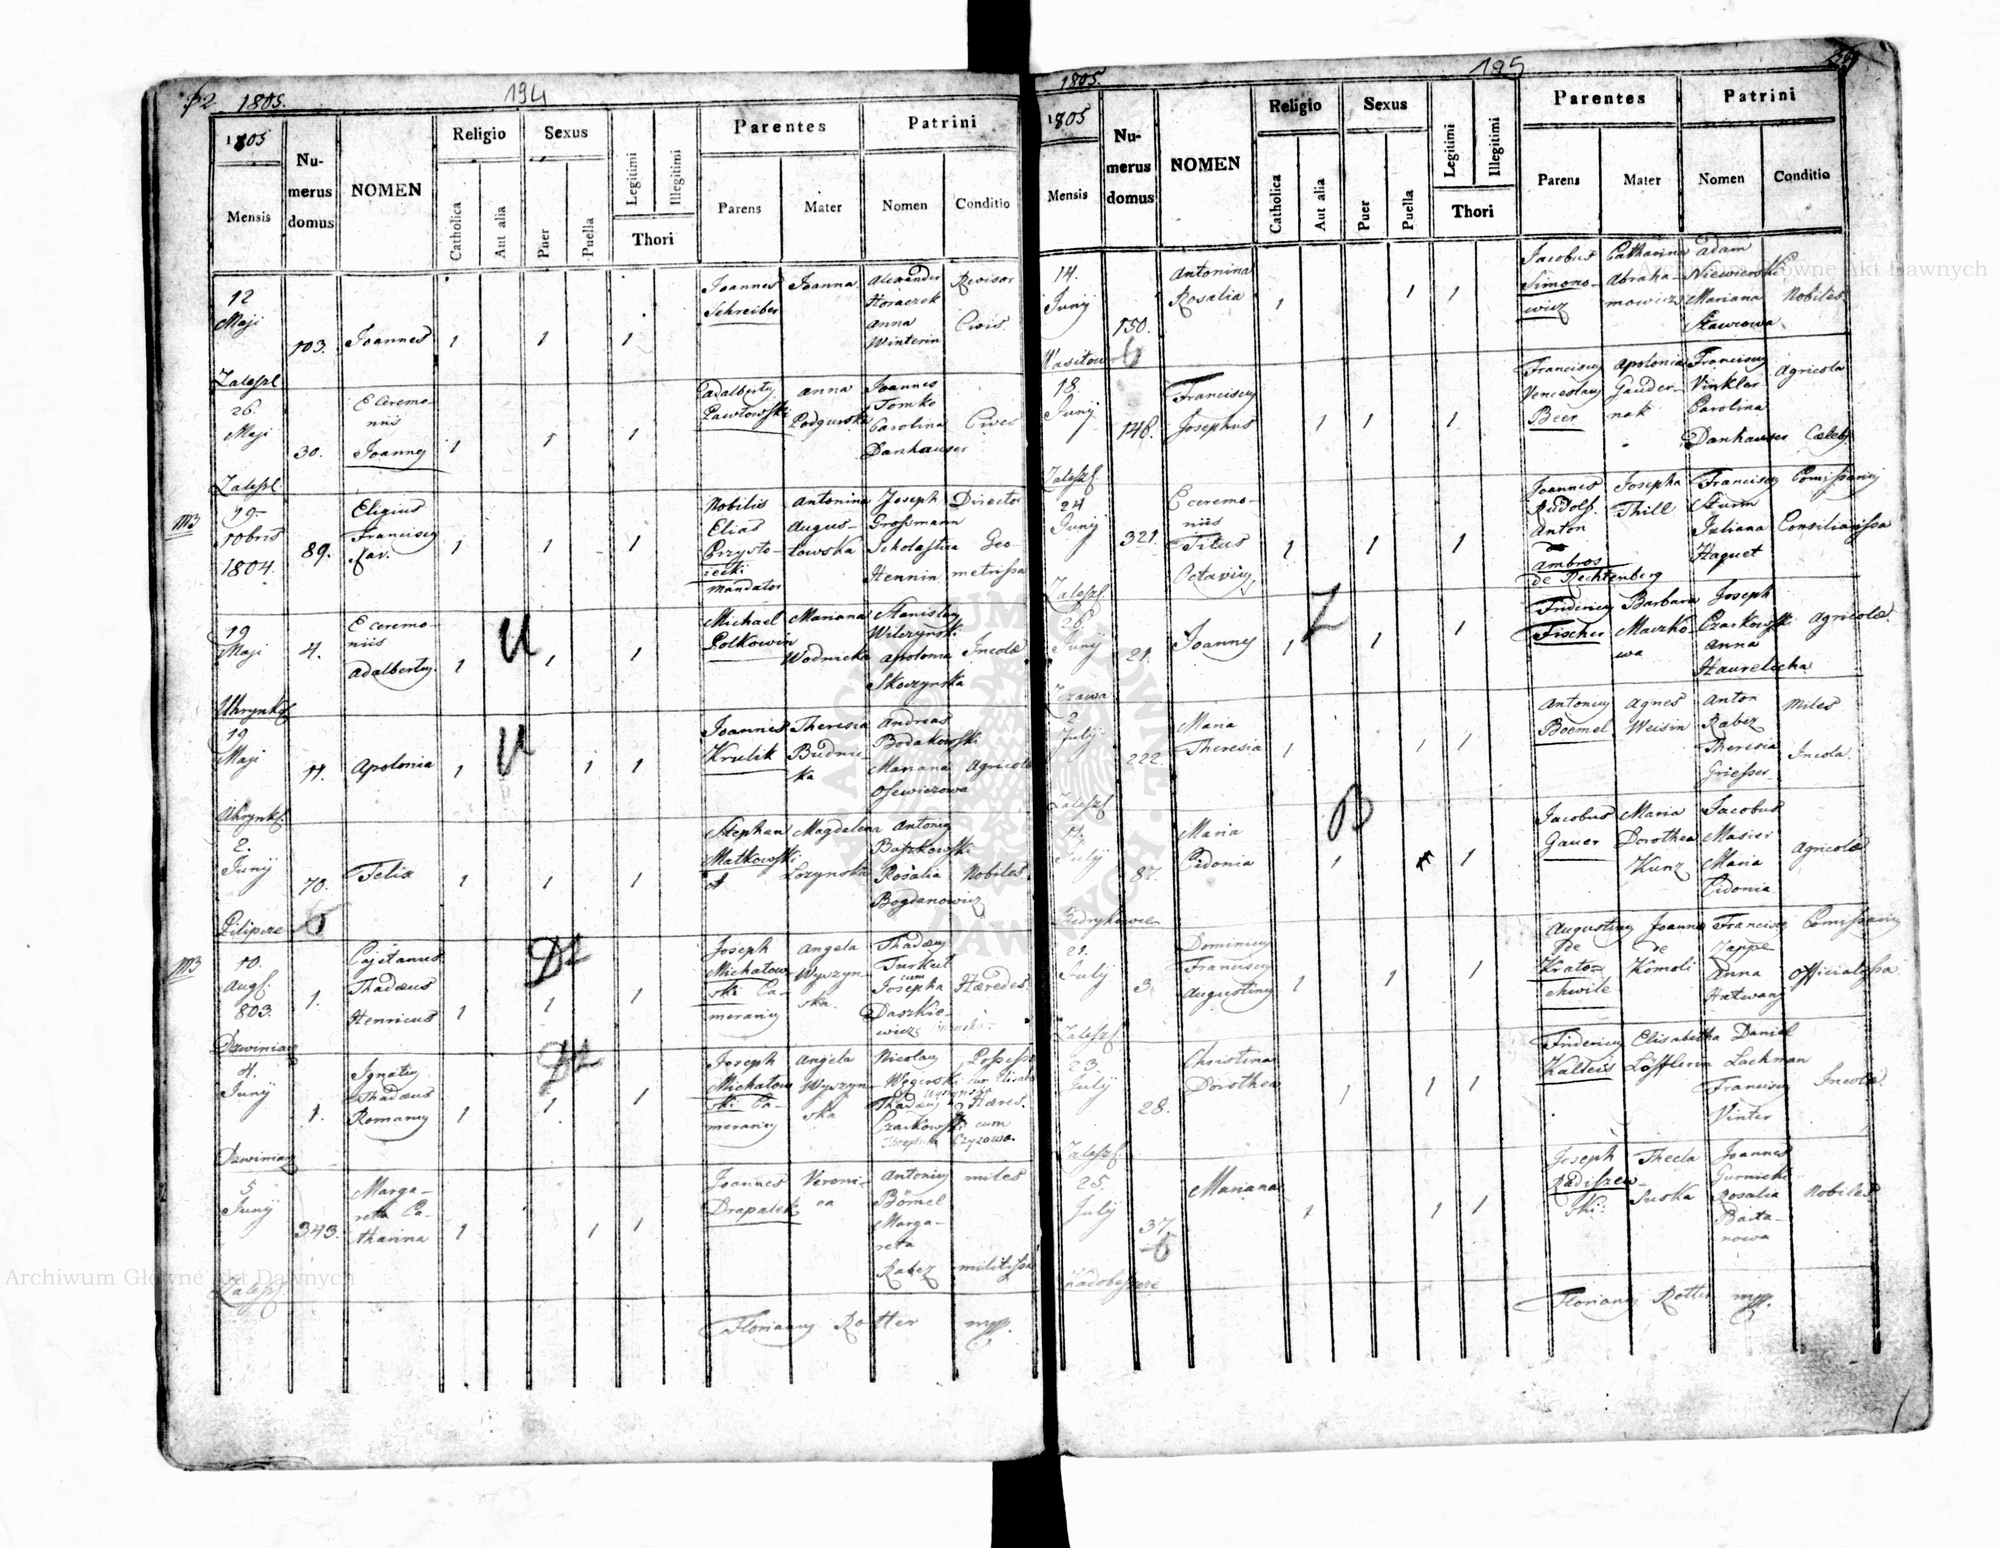 1805.
194
1805
Mensis
Numerus domus
NOMEN
Religio
Catholica
Aut alia
Sexus
Puer
Puella
Legitimi
Illegitimi
Thori
Parentes
Parens
Mater
Patrini
Nomen
Conditio
12 Maji Zaleszl
103.
Joannes
1 1 1
Joannes Schreiber
Joanna
Alexander Horaczek
Anna Winterin
Revisor
Civis
26. Maji Zaleszl
30.
E Ceremoniis
Joannes
1 1 1
Adalbertus Pawlowski
Anna Podgurska
Joannes Tomko
Carolina Danhauser
Cives
M3
19 10bris 1804
89.
Eligius Franciscus Xav.
1 1 1
Nobilis Elias
mandator
Antonina Augustowska
Joseph Grossmann
Scholastica Hennin
Director
Geometrissa
19 Maji Uhrynk
4.
E ceremoniis
Adalbertus
1 U 1 1
Michael Polkowin
Mariana Wodnicka
Stanislaus Wilczynski
Apolonia Skoczynska
Incolæ
19 Maji Uhrynk
11.
Apolonia
1 U 1 1
Joannes Krulik
Theresia Budnicka
Andreas Bodakowski
Mariana Osewiczowa
Agricolæ
2. Junij Pilipcze
70. 6
Felix
1 1 1
Stephan Matkowski
Magdalena Lozynska
Antonius
Rosalia Bogdanowicz
Nobiles
M3
10. Aug. 803. Dzwiniacz
1.
Cajetanus Thadæus Henricus
1 1 1
Joseph Michalowski Camerarius
Angela Wyszynska.
Thadæus Turkul
cum
Josepha Daszkiewicz
Hæredes.
4. Junij Dzwiniacz
1.
Ignatius Thadæus Romanus
1 1 1
Joseph Michalowski Camerarius
Angela Wyszynska
Nicolaus
Thadæus Czarkowski cum
Hæres.
5 Junij Zalesz.
343.
Margareta Catharina
1 1 1
Joannes Drapalek
Veronica
Antonius Börnel
Margareta Rabez
miles
militissa
Florianus Rotter mpp.
1805.
195
1805
Mensis
Numerus domus
NOMEN
Religio
Catholica
Aut alia
Sexus
Puer
Puella
Legitimi
Illegitimi
Thori
Parentes
Parens
Mater
Patrini
Nomen
Conditio
14. Junij
150. 6
Antonina Rosalia
1 1 1
Jacobus Simonowicz
Catharina Abrahamowicz
Adam Niewierski
Mariana
Nobiles
18. Junij Zalesz
148.
Franciscus Josephus
1 1 1
Franciscus Venceslaus Beer
Apolonia Gaudernak
Franciscus Vinkler
Carolina Danhauser
Agricola
Cæleb.
24 Junij Zalesz
321.
E ceremoniis
Titus Octavius
1 1 1
Joannes Rudolf. Anton
Ambros de Rechtenberg
Josepha Thill
Franciscus Sturm
Juliana Haquet
Comissarius
Consiliarissa
26. Junij Zezawa
21.
Joannes
1 Z 1 1
Fridericus Fischer
Barbara Maczkowa
Joseph Czarkowski
Anna Haurelicha
Agricolæ.
2 July Zalesz
222.
Maria Theresia
1 1 1
Antonius Boemel
Agnes Weisin
Anton Rabez
Theresia Griesser
Miles
Incola.
11. July
87.
Maria Cidonia
1 B 1
Jacobus Gauer
Maria Dorothea Kunz
Jacobus Masier
Maria Cidonia
Agricolæ
21. July Zalesz
3.
Dominicus Franciscus Augustinus
1 1 1
Augustinus de Kratochwile
Joanna de Komoli
Francisc Zappe
Anna Hatwang
Comissarius
Officialissa
23. July Zalesz
28.
Christina Dorothea
1 1 1
Fridericus Kalteis
Elisabetha Löfflerin
Daniel Lachman
Franciscus Vinter
Incolæ.
25. July
37 6
Mariana
1 1 1
Joseph Radiszewski
Thecla Suska
Joannes Gurnicki
Rosalia Bartanowa
Nobiles
Florianus Rotter mpp.
Archiwum Główne Akt Dawnych